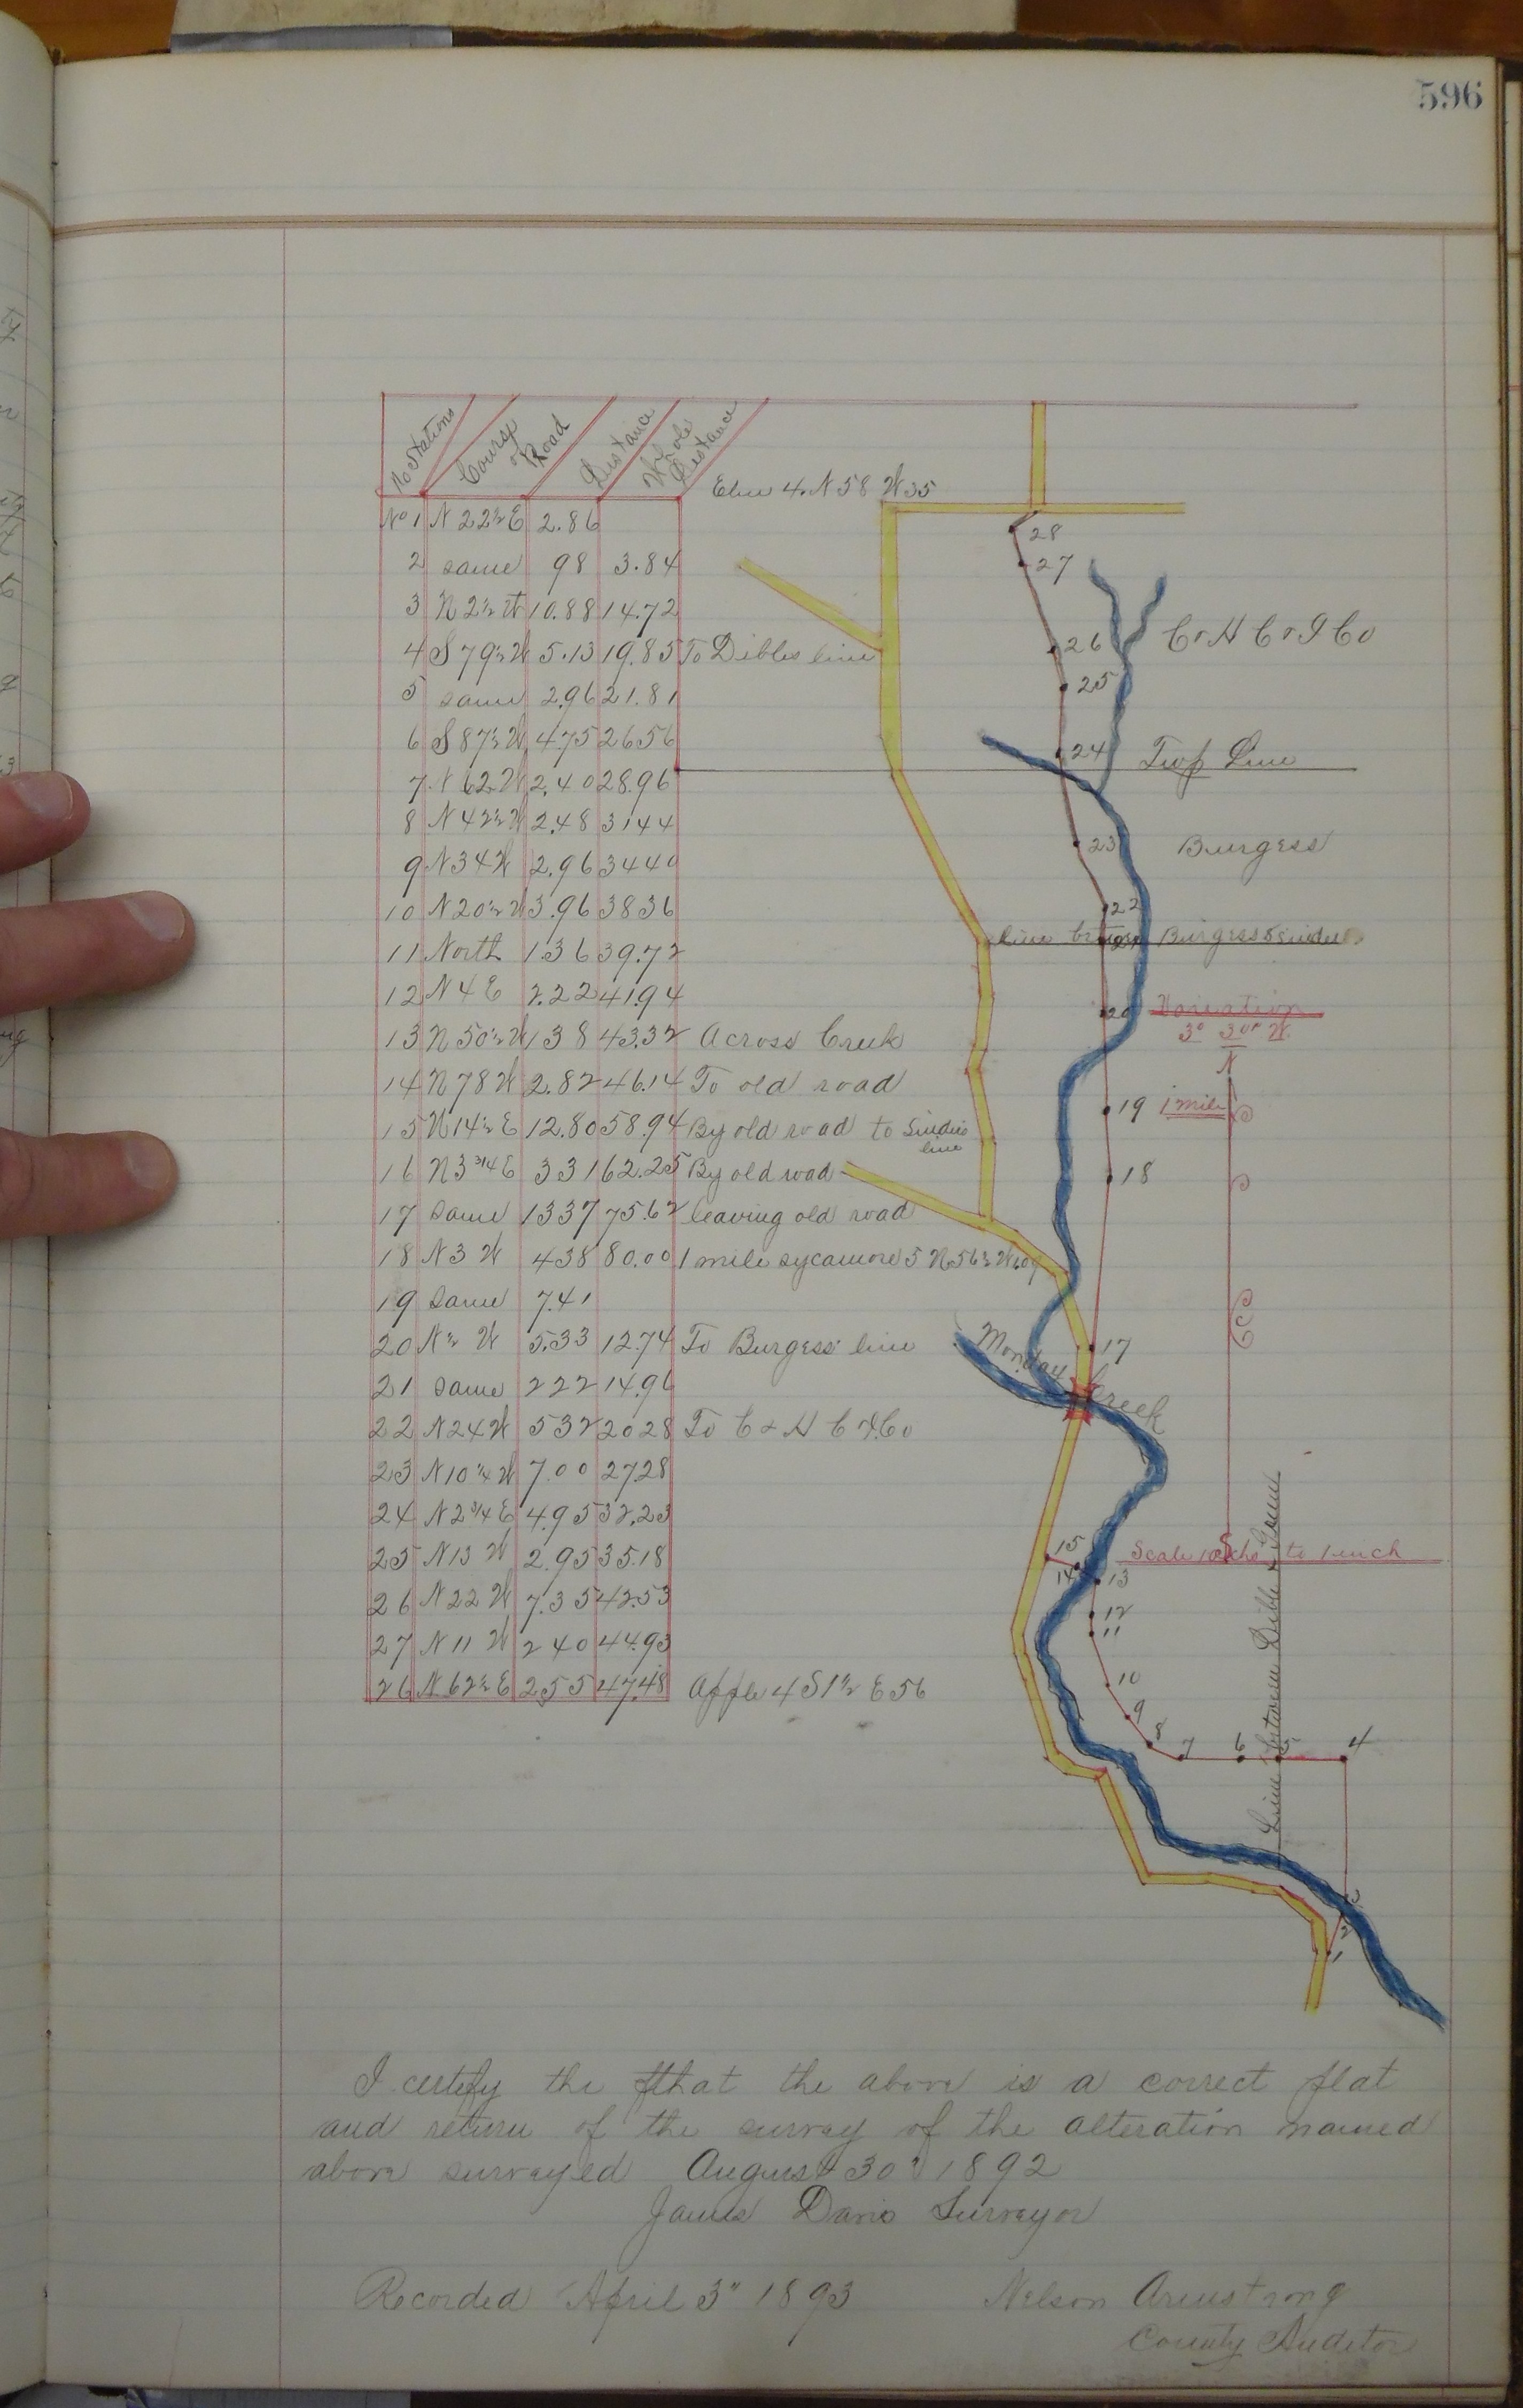 596
No Stations Course of Road Distance Whole Distance
Elm 4. N 58 W 35
No 1 N 22½ E 2.86
2 same 98 3.84
3 N 2½ W 10.88 14.72
4 S 79½ W 5.13 19.85 To Dibles line
5 same 2.96 21.81
6 S 87½ W 4.75 26 56
7 N 62 W 2.40 28.96
8 N 42½ W 2.48 31 44
9 N 34 W 2.96 34 40
10 N 20½ W 3.96 38 36
11 North 1.36 39.72
12 N 4 E 2.22 41.94
13 N 50½ W 1 38 43.32 Across Creek
14 N 78 W 2.82 46.14 To old road
15 N 14½ E 12.80 58.94 By old road to line
16 N 3 3/4 E 3 31 62.25 By old road
17 same 13 37 75.62 leaving old road
18 N 3 W 4 38 80.00 1 mile sycamore 5 N 56½ W 60
19 same 7.41
20 N ½ W 5.33 12.74 To Burgess line
21 same 2 22 14.96
22 N 24 W 5 32 20 28 To C & H C & I. Co
23 N 10 1/4 W 7.00 27.28
24 N 2 3/4 E 4.95 32.23
25 N 13 W 2.95 35.18
26 N 22 W 7.35 42.53
27 N 11 W 2 40 44.93
26 N 62½ E 2 55 47.48 Apple 4 S 1½ E 56
28
27
26 C & H C & I Co
25
24 Twp Line
23 Burgess
22
line between Burgess &
20 Variation
3° 30" W.
N
19 1 mile
18
17
Monday Creek
S
15
Scale 10 chs to 1 inch
14 13
12
11
10
9
8 7 6 5 4
Line between Dible &
3
2
1
I certify the that the above is a correct plat
and return of the survey of the alteration named
above surveyed August 30" 1892
James Davis Surveyor
Recorded April 3" 1893 Nelson Armstrong
County Auditor